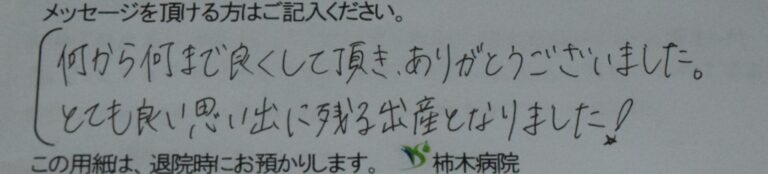 メッセージを頂ける方はご記入ください。
何から何まで良くして頂き、ありがとうございました。
とても良い思い出に残る出産となりました!
この用紙は、退院時にお預かりします。 柿木病院